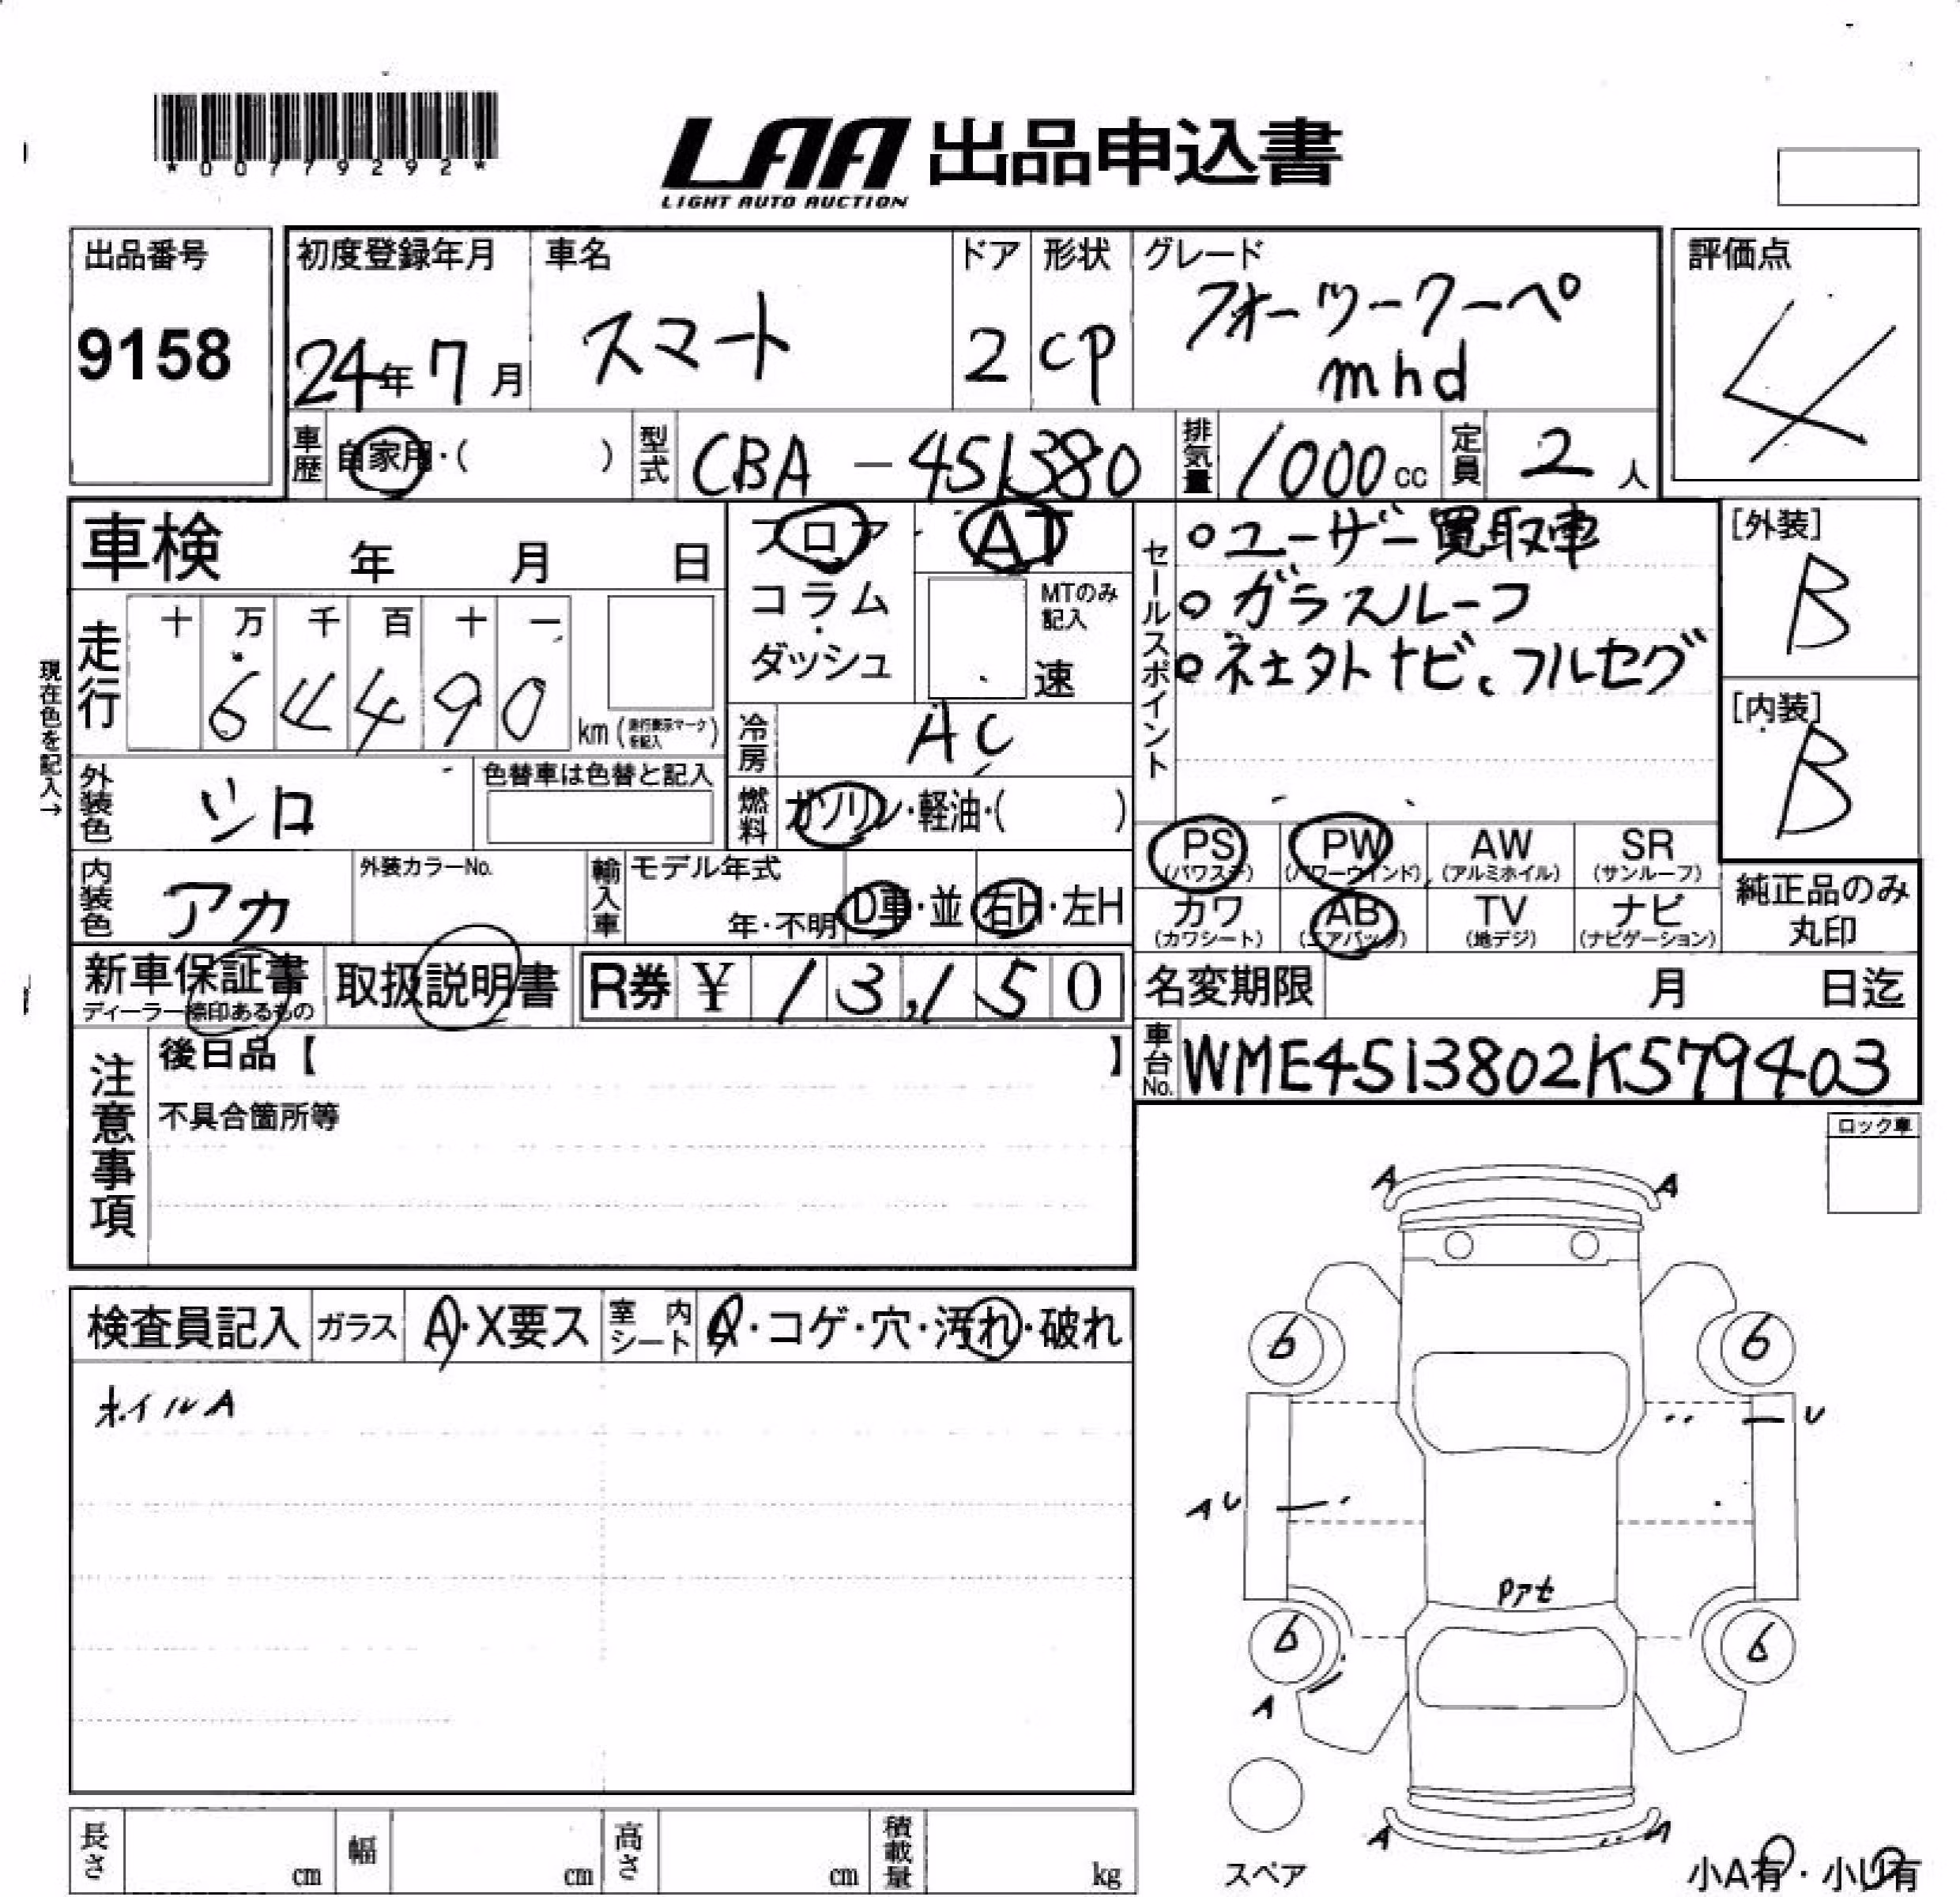 *00779292*
LAA 出品申込書
LIGHT AUTO AUCTION
出品番号
9158
初度登録年月
24年7月
車名
スマート
ドア
2
形状
CP
グレード
フォーツークーペ
mhd
評価点
4
車歴 自家用・( )
型式 CBA-451380
排気量 1000cc
定員 2人
車検 年 月 日
現在色を記入→
走行 十 万 千 百 十 一
64490 km(走行表示マークを記入)
フロア
コラム・
ダッシュ
AT
MTのみ記入
速
冷房 AC
燃料 ガソリン・軽油・( )
セールスポイント
○ユーザー買取車
○ガラスルーフ
○社外ナビ、フルセグ
[外装]
B
[内装]
B
外装色 シロ
色替車は色替と記入
内装色 アカ
外装カラーNo.
輸入車 モデル年式
年・不明 D車・並 右H・左H
PS (パワステ) PW (パワーウインド) AW (アルミホイル) SR (サンルーフ)
カワ (カワシート) AB (エアバック) TV (地デジ) ナビ (ナビゲーション)
純正品のみ
丸印
新車保証書
ディーラー捺印あるもの
取扱説明書
R券 ¥ 13,150
名変期限 月 日迄
車台No. WME4513802K579403
注意事項
後日品【 】
不具合箇所等
ロック車
検査員記入 ガラス A・X要ス 室内シート A・コゲ・穴・汚れ・破れ
ホイルA
A A
6 6
U
AU
Pアせ
6 6
A
A
スペア
小A有・小U有
長さ cm 幅 cm 高さ cm 積載量 kg